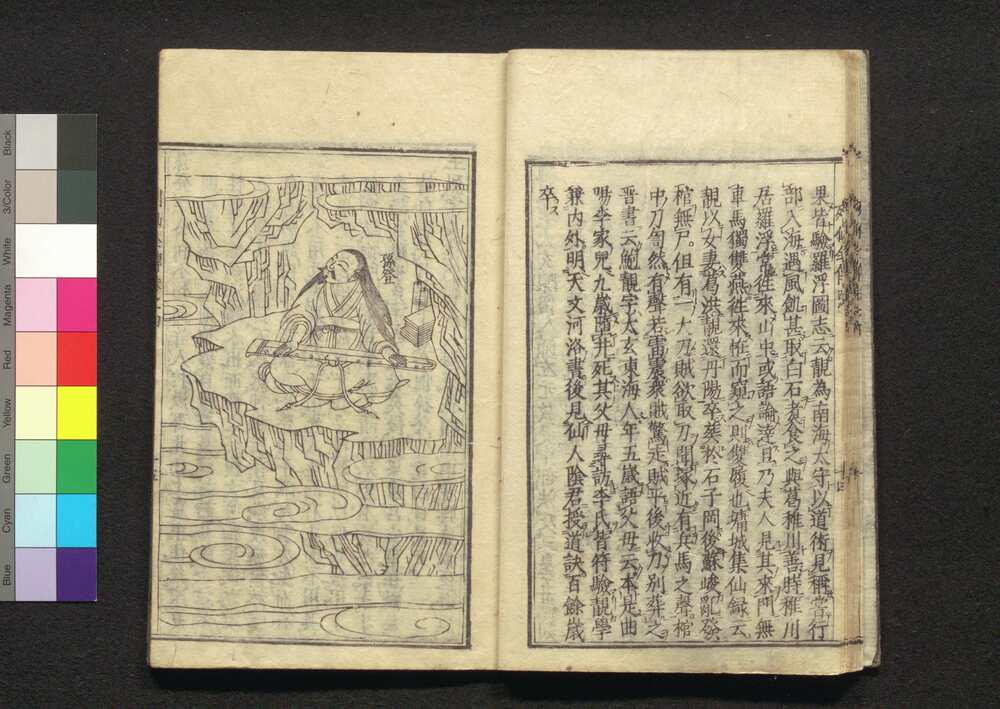 果皆驗羅浮圖志云靚為南海太守以道術見稱嘗行
部入海遇風飢甚取白石煮食之與葛稚川善時稚川
居羅浮常往來山中或語論達旦乃夫人見其來門無
車馬獨雙燕往來怪而窺之則雙履也墉城集仙録云
靚以女妻葛洪靚還丹陽卒葬於石子岡後蘇峻亂發
棺無尸但有一大刀賊欲取刀聞冢近有兵馬之聲棺
中刀訇然有聲若雷震衆賊驚走賊平後收刀別葬之
晉書云鮑靚字太玄東海人年五歳語父母云本是曲
陽李家兒九歳墮井死其父母尋訪李氏皆符驗靚學
兼内外明天文河洛書後見仙人陰君授道訣百餘歳
卒
孫登
Black
3/Color
White
Magenta
Red
Yellow
Green
Cyan
Blue